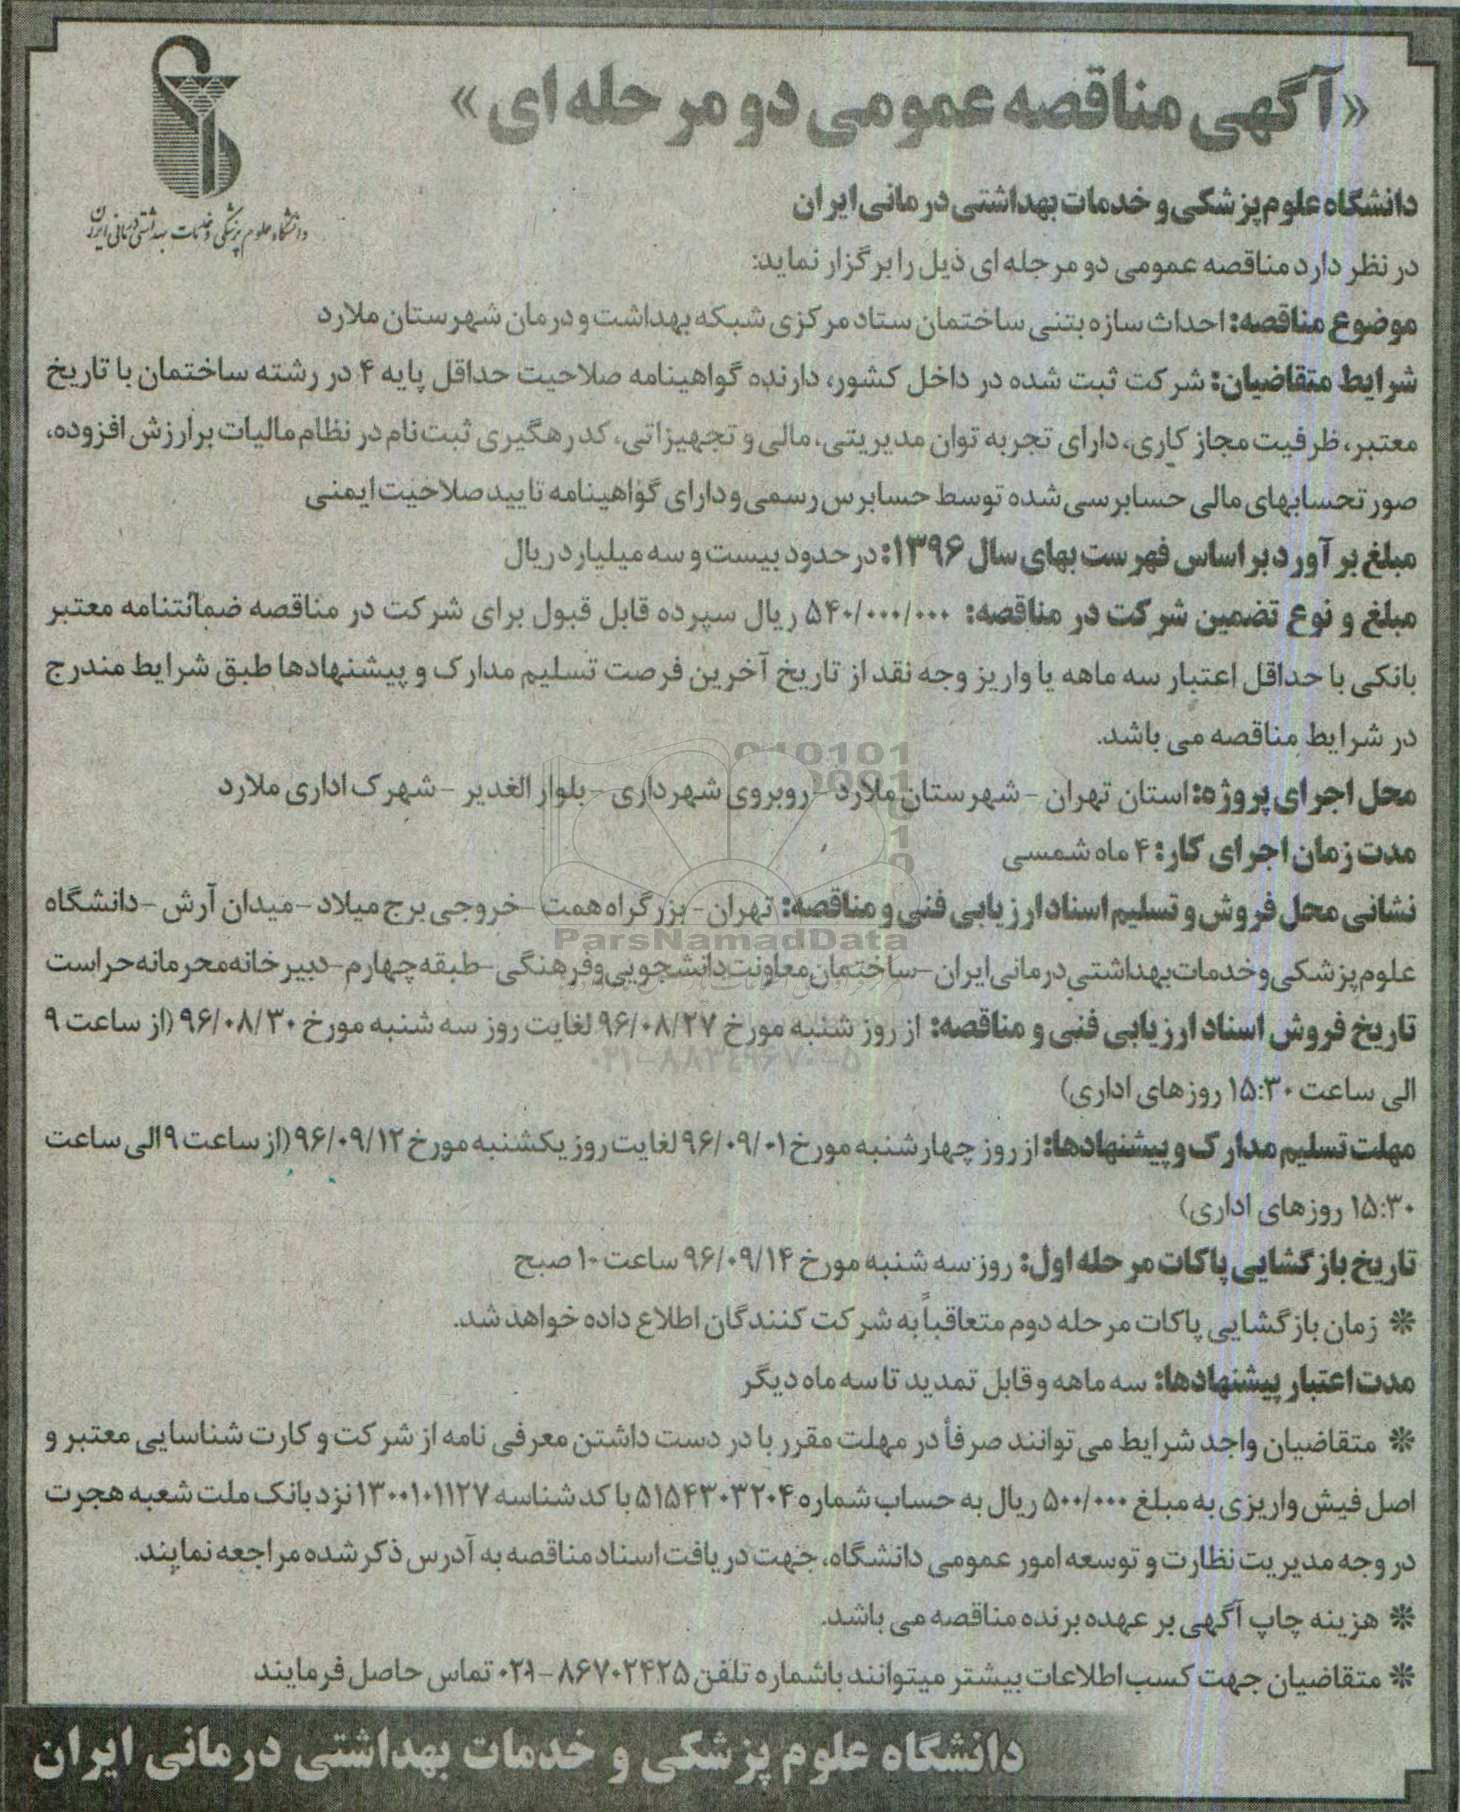 «آگهی مناقصه عمومی دو مرحله ای»
دانشگاه علوم پزشکی و خدمات بهداشتی درمانی ایران
دانشگاه علوم پزشکی و خدمات بهداشتی درمانی ایران
در نظر دارد مناقصه عمومی دو مرحله ای ذیل را برگزار نماید:
موضوع مناقصه: احداث سازه بتنی ساختمان ستاد مرکزی شبکه بهداشت و درمان شهرستان ملارد
شرایط متقاضیان: شرکت ثبت شده در داخل کشور، دارنده گواهینامه صلاحیت حداقل پایه ۴ در رشته ساختمان با تاریخ
معتبر، ظرفیت مجاز کاری، دارای تجربه توان مدیریتی، مالی و تجهیزاتی، کد رهگیری ثبت نام در نظام مالیات بر ارزش افزوده،
صورتحسابهای مالی حسابرسی شده توسط حسابرس رسمی و دارای گواهینامه تایید صلاحیت ایمنی
مبلغ برآورد بر اساس فهرست بهای سال ۱۳۹۶: در حدود بیست و سه میلیارد ریال
مبلغ و نوع تضمین شرکت در مناقصه: ۵۴۰/۰۰۰/۰۰۰ ریال سپرده قابل قبول برای شرکت در مناقصه ضمانتنامه معتبر
بانکی با حداقل اعتبار سه ماهه یا واریز وجه نقد از تاریخ آخرین فرصت تسلیم مدارک و پیشنهادها طبق شرایط مندرج
در شرایط مناقصه می باشد.
محل اجرای پروژه: استان تهران - شهرستان ملارد - روبروی شهرداری - بلوار الغدیر - شهرک اداری ملارد
مدت زمان اجرای کار: ۴ ماه شمسی
نشانی محل فروش و تسلیم اسناد ارزیابی فنی و مناقصه: تهران - بزرگراه همت - خروجی برج میلاد - میدان آرش - دانشگاه
ParsNamadData
علوم پزشکی و خدمات بهداشتی درمانی ایران - ساختمان معاونت دانشجویی و فرهنگی - طبقه چهارم - دبیرخانه محرمانه حراست
تاریخ فروش اسناد ارزیابی فنی و مناقصه: از روز شنبه مورخ ۹۶/۰۸/۲۷ لغایت روز سه شنبه مورخ ۹۶/۰۸/۳۰ (از ساعت ۹
۰۲۱-۸۸۳۴۹۶۷۰-۵
الی ساعت ۱۵:۳۰ روزهای اداری)
مهلت تسلیم مدارک و پیشنهادها: از روز چهارشنبه مورخ ۹۶/۰۹/۰۱ لغایت روز یکشنبه مورخ ۹۶/۰۹/۱۲ (از ساعت ۹ الی ساعت
۱۵:۳۰ روزهای اداری)
تاریخ بازگشایی پاکات مرحله اول: روز سه شنبه مورخ ۹۶/۰۹/۱۴ ساعت ۱۰ صبح
❊ زمان بازگشایی پاکات مرحله دوم متعاقباً به شرکت کنندگان اطلاع داده خواهد شد.
مدت اعتبار پیشنهادها: سه ماهه و قابل تمدید تا سه ماه دیگر
❊ متقاضیان واجد شرایط می توانند صرفاً در مهلت مقرر با در دست داشتن معرفی نامه از شرکت و کارت شناسایی معتبر و
اصل فیش واریزی به مبلغ ۵۰۰/۰۰۰ ریال به حساب شماره ۵۱۵۴۳۰۳۲۰۴ با کد شناسه ۱۳۰۰۱۰۱۱۲۷ نزد بانک ملت شعبه هجرت
در وجه مدیریت نظارت و توسعه امور عمومی دانشگاه، جهت دریافت اسناد مناقصه به آدرس ذکر شده مراجعه نمایند.
❊ هزینه چاپ آگهی بر عهده برنده مناقصه می باشد.
❊ متقاضیان جهت کسب اطلاعات بیشتر میتوانند باشماره تلفن ۸۶۷۰۲۴۲۵-۰۲۱ تماس حاصل فرمایند
دانشگاه علوم پزشکی و خدمات بهداشتی درمانی ایران